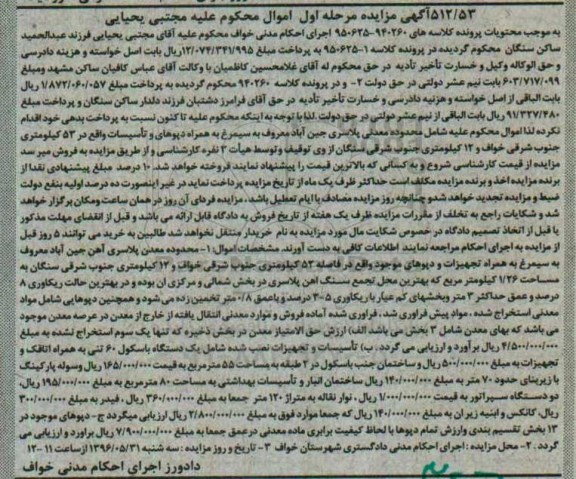 ۵۱۲/۵۳ آگهی مزایده مرحله اول اموال محکوم علیه مجتبی یحیایی
به موجب محتویات پرونده کلاسه های ۹۴۰۲۶۰-۹۵۰۶۲۵ اجرای احکام مدنی خواف محکوم علیه آقای مجتبی یحیایی فرزند عبدالحمید
ساکن سنگان محکوم گردیده در پرونده کلاسه ۱-۹۵۰۶۲۵ به پرداخت مبلغ ۱۲/۰۷۴/۳۴۱/۹۹۵ ریال بابت اصل خواسته و هزینه دادرسی
و حق الوکاله وکیل و خسارت تأخیر تأدیه در حق محکوم له آقای غلامحسین کاظمیان با وکالت آقای عباس کافیان ساکن مشهد ومبلغ
۶۰۳/۷۱۷/۰۹۹ بابت نیم عشر دولتی در حق دولت ۲- و در پرونده کلاسه ۹۴۰۲۶۰ محکوم گردیده به پرداخت مبلغ ۱/۸۷۲/۰۶۰/۰۵۷ ریال
بابت الباقی از اصل خواسته و هزنیه دادرسی و خسارت تأخیر تأدیه در حق آقای فرامرز دشتبان فرزند دلدار ساکن سنگان و پرداخت مبلغ
۹۱/۳۲۷/۴۸۰ ریال بابت الباقی از نیم عشر دولتی در حق دولت.لذا با توجه به اینکه محکوم علیه تاکنون نسبت به پرداخت بدهی خود اقدام
نکرده لذا اموال محکوم علیه شامل محدوده معدنی پلاسری جین آباد معروف به سیمرغ به همراه دپوهای و تأسیسات واقع در ۵۳ کیلومتری
جنوب شرقی خواف و ۱۲ کیلومتری جنوب شرقی سنگان از وی توقیف و توسط هیأت ۳ نفره کارشناسی و از طریق مزایده به فروش میرسد
مزایده از قیمت کارشناسی شروع و به کسانی که بالاترین قیمت را پیشنهاد نمایند فروخته خواهد شد. ۱۰ درصد مبلغ پیشنهادی نقدا از
برنده مزایده اخذ و برنده مزایده مکلف است حداکثر ظرف یک ماه از تاریخ مزایده پرداخت نماید در غیر اینصورت ده درصد اولیه بنفع دولت
ضبط و مزایده تجدید خواهد شدو چنانچه روز مزایده مصادف با ایام تعطیل باشد، مزایده فردای آن روز در همان ساعت ومکان برگزار خواهد
شد و شکایات راجع به تخلف از مقررات مزایده ظرف یک هفته از تاریخ فروش به دادگاه قابل ارائه می باشد و قبل از انقضای مهلت مذکور
یا قبل از اتخاذ تصمیم دادگاه در خصوص شکایت مال مورد مزایده به نام خریدار منتقل نخواهد شد طالبین به خرید می توانند ۵ روز قبل
از مزایده به اجرای احکام مراجعه نمایند اطلاعات کافی به دست آورند. مشخصات اموال: ۱- محدوده معدن پلاسری آهن جین آباد معروف
به سیمرغ به همراه تجهیزات و دپوهای موجود واقع در فاصله ۵۳ کیلومتری جنوب شرقی خواف و ۱۲ کیلومتری جنوب شرقی سنگان به
مساحت ۱/۲۶ کیلومتر مربع که بهترین محل تجمع سنگ آهن پلاسری در بخش شمالی و مرکزی آن بوده و در بهترین حالت ریکاوری ۸
درصد و عمق حداکثر ۳ متر وبخشهای کم عیار با ریکاوری ۵-۳ درصد و باعمق ۰/۸ متر تخمین زده می شود و همچنین دپوهایی شامل مواد
معدنی استخراج شده، مواد پیش فراوری شد، فراوری شده آماده فروش و موارد معدنی انتقال یافته از خارج از معدن در عرصه معدن موجود
می باشد که بهای معدن شامل ۳ بخش می باشد الف) ارزش حق الامتیاز معدن در بخش ذخیره که تنها یک سوم استخراج نشده به مبلغ
۴/۵۰۰/۰۰۰/۰۰۰ ریال برآورد و ارزیابی می گردد. ب) تأسیسات و تجهیزات نصب شده شامل یک دستگاه باسکول ۶۰ تنی به همراه اتاقک و
تجهیزات به مبلغ ۵۰۰/۰۰۰/۰۰۰ ریال و ساختمان جنب باسکول در ۲ طبقه به مساحت ۵۵ مترمربع به قیمت ۱۶۵/۰۰۰/۰۰۰ ریال وسوله پارکینگ
با زیربنای حدود ۷۰ متر به مبلغ ۱۴۰/۰۰۰/۰۰۰ ریال ساختمان انبار و تأسیسات بهداشتی به مساحت ۸۰ مترمربع به مبلغ ۱۹۵/۰۰۰/۰۰۰ ریال،
دو دستگاه سپراتور به قیمت ۱/۰۰۰/۰۰۰/۰۰۰ ریال، نوار نقاله به متراژ ۱۲۰ متر جمعا به مبلغ ۳۶۰/۰۰۰/۰۰۰ ریال، فیدر به مبلغ ۳۰۰/۰۰۰/۰۰۰
ریال، کانکس و ابنیه زیر ان به مبلغ ۱۴۰/۰۰۰/۰۰۰ ریال که جمعا موارد فوق به مبلغ ۲/۸۰۰/۰۰۰/۰۰۰ ریال ارزیابی میگردد ج- دپوهای موجود در
۱۳ بخش تقسیم بندی وارزش تمام دپوها با لحاظ کیفیت برابری ماده معدنی در عمق جمعا به مبلغ ۷/۹۰۰/۰۰۰/۰۰۰ ریال براورد و ارزیابی می
گردد. ۲- محل مزایده: اجرای احکام مدنی دادگستری شهرستان خواف ۳- تاریخ و روز مزایده: سه شنبه ۱۳۹۶/۰۵/۳۱ از ساعت ۱۱-۱۲
دادورز اجرای احکام مدنی خواف